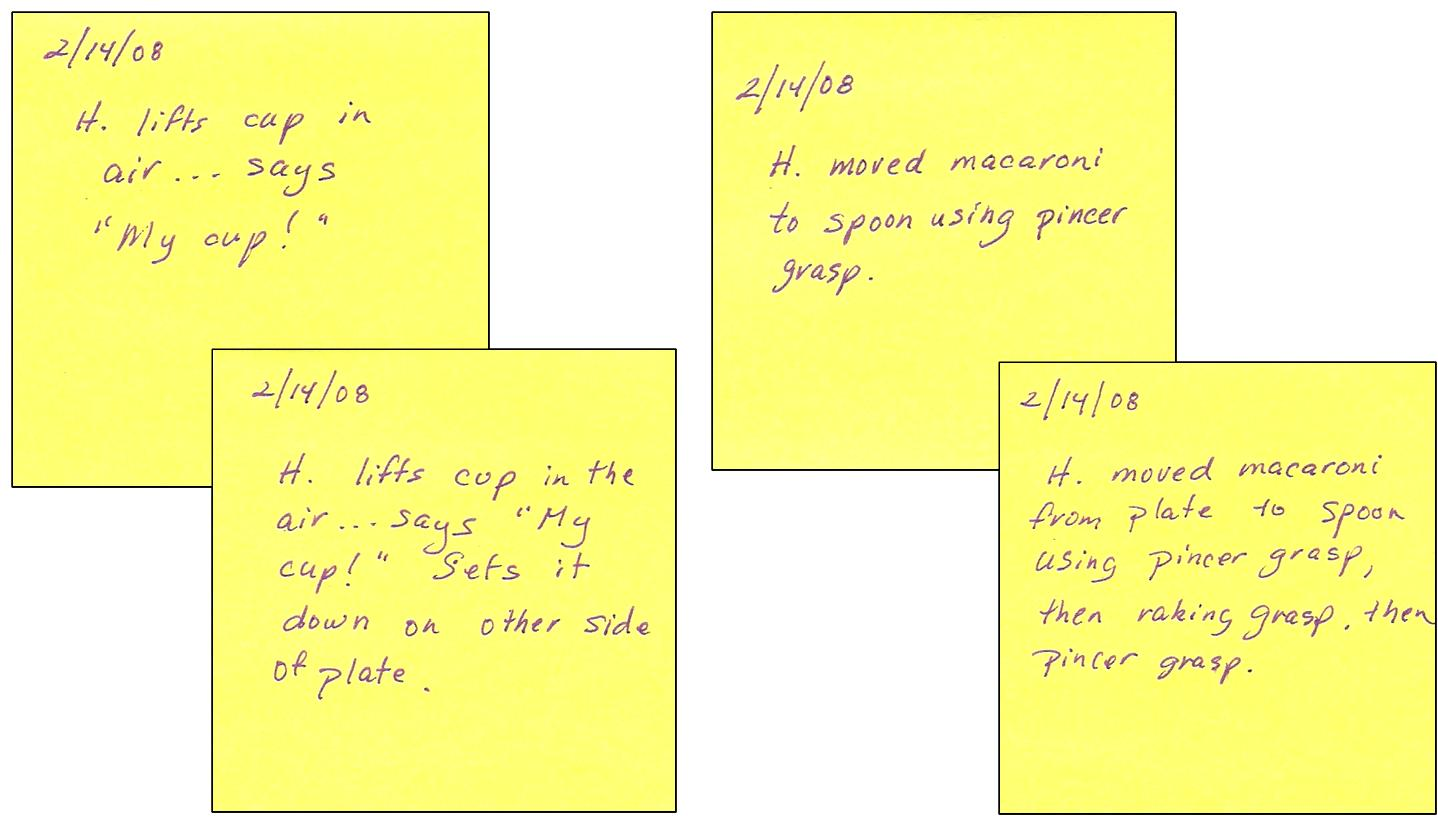 2/14/08
H. lifts cup in
air... says
"My cup!"
2/14/08
H. lifts cup in the
air... says "My
cup!" Sets it
down on other side
of plate.
2/14/08
H. moved macaroni
to spoon using pincer
grasp.
2/14/08
H. moved macaroni
from plate to spoon
using pincer grasp,
then raking grasp, then
pincer grasp.